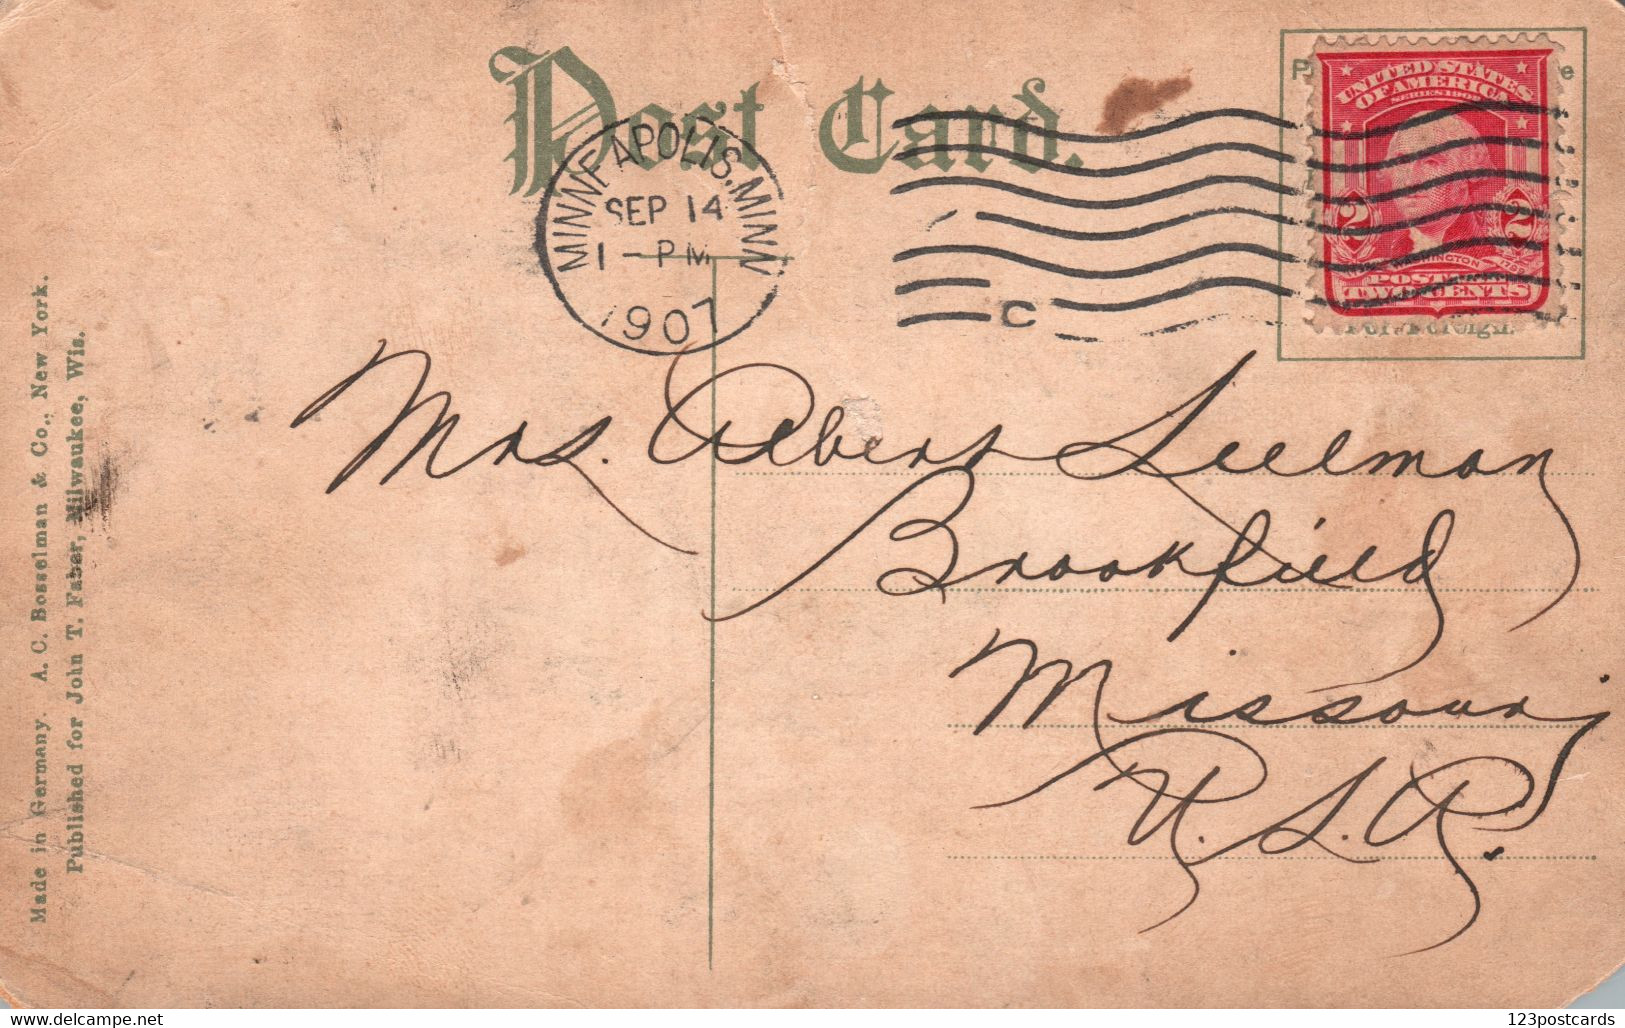 Post Card.
MINNEAPOLIS, MINN.
SEP 14
1 - PM
1907
C
UNITED STATES
OF AMERICA
SERIES 1902
2 2
WASHINGTON
POSTAGE
TWO CENTS
Foreign.
Mrs. Albert Seelman
Brookfield
Missouri
U.S.A.
Made in Germany. A. C. Bosselman & Co., New York.
Published for John T. Faber, Milwaukee, Wis.
123postcards